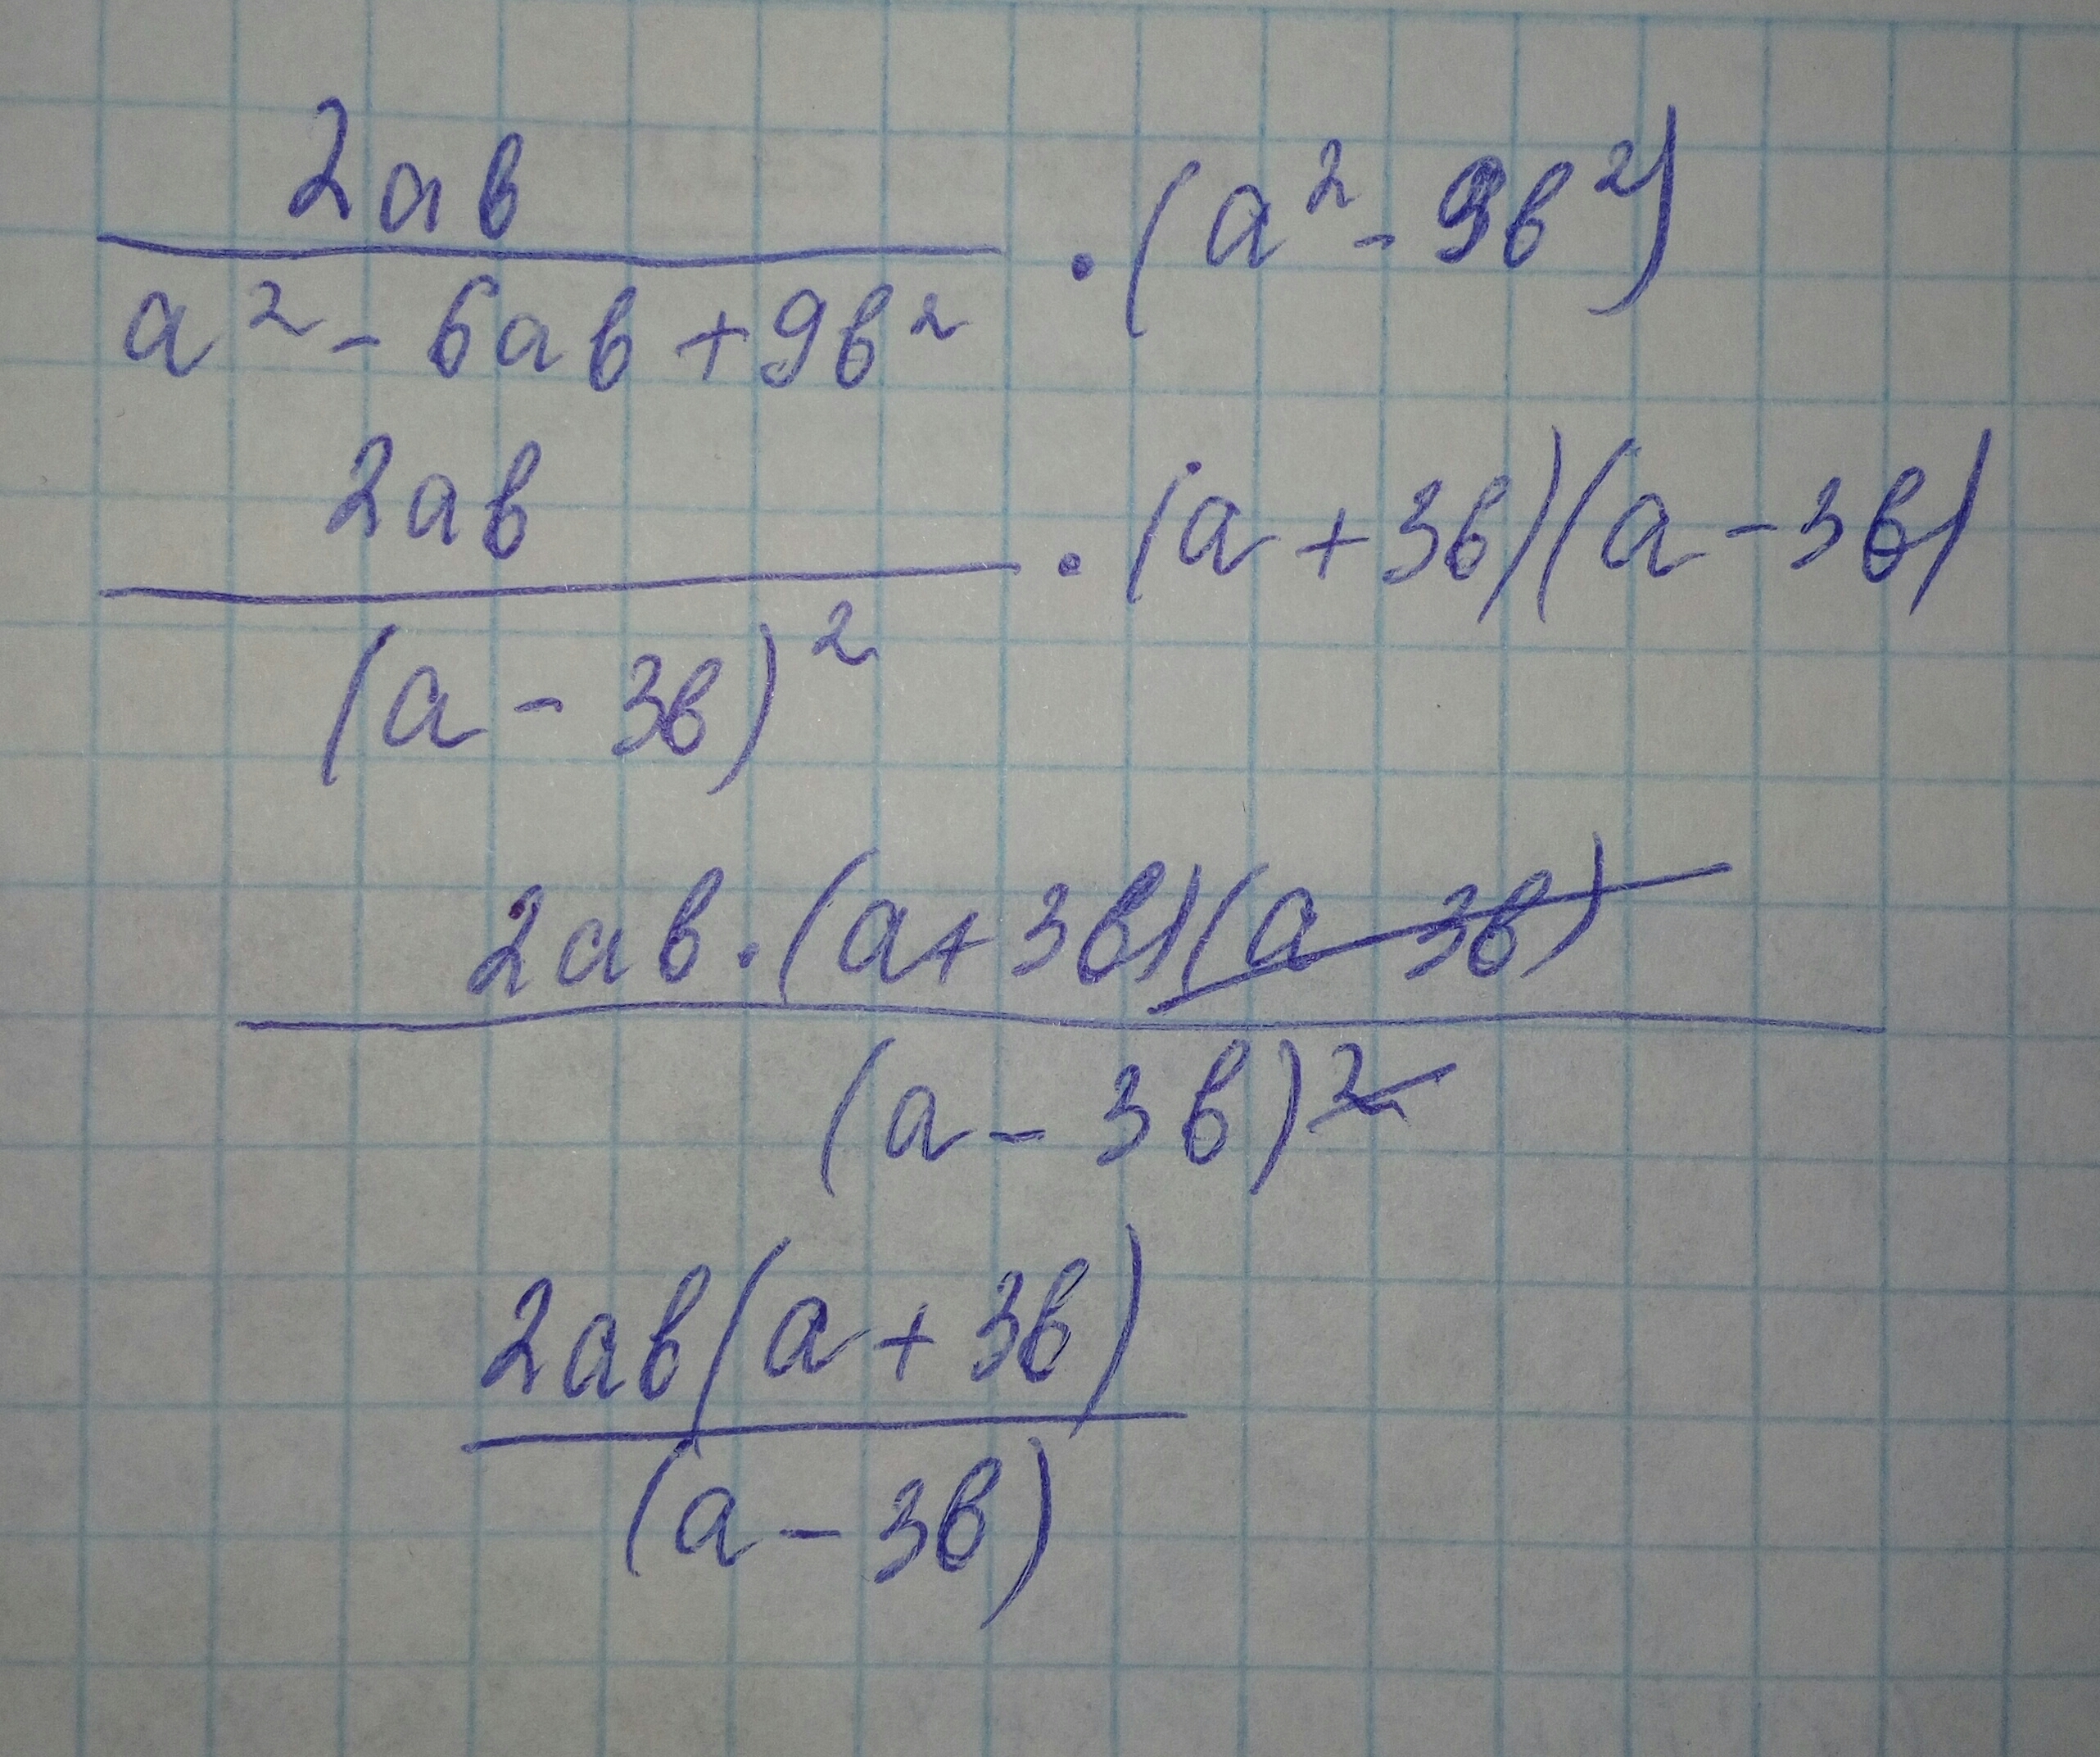 2ab
a² - 6ab + 9b² · (a² - 9b²)
2ab
(a - 3b)² · (a + 3b)(a - 3b)
2ab · (a + 3b)(a - 3b)
(a - 3b)²
2ab(a + 3b)
(a - 3b)